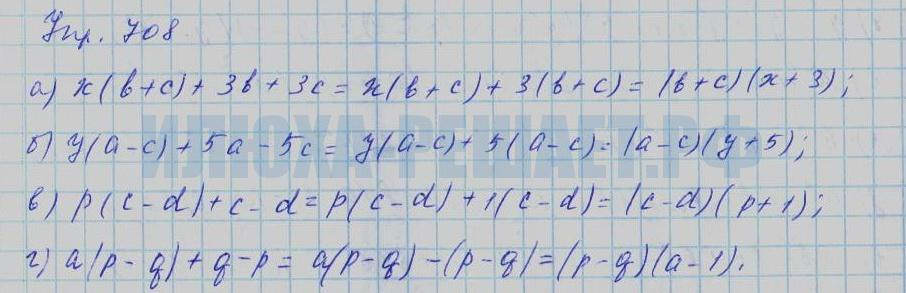 Упр. 708
а) x(b+c) + 3b + 3c = x(b+c) + 3(b+c) = (b+c)(x+3);
б) y(a-c) + 5a - 5c = y(a-c) + 5(a-c) = (a-c)(y+5);
ИЛЮХА-РЕШАЕТ.РФ
в) p(c-d) + c - d = p(c-d) + 1(c-d) = (c-d)(p+1);
г) a(p-q) + q - p = a(p-q) - (p-q) = (p-q)(a-1).